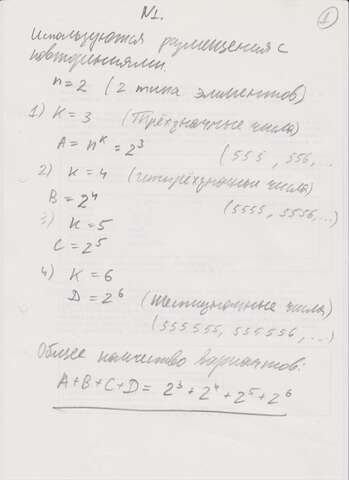 1
№1.
Используются размещения с
повторениями.
n=2 (2 типа элементов)
1) K=3 (Трёхзначные числа)
A = n^K = 2^3 (555, 556, ...
2) K=4 (четырёхзначные числа)
B = 2^4 (5555, 5556, ...)
3) K=5
C = 2^5
4) K=6
D = 2^6 (шестизначные числа)
(555555, 555556, ...)
Общее количество вариантов:
A+B+C+D = 2^3+2^4+2^5+2^6